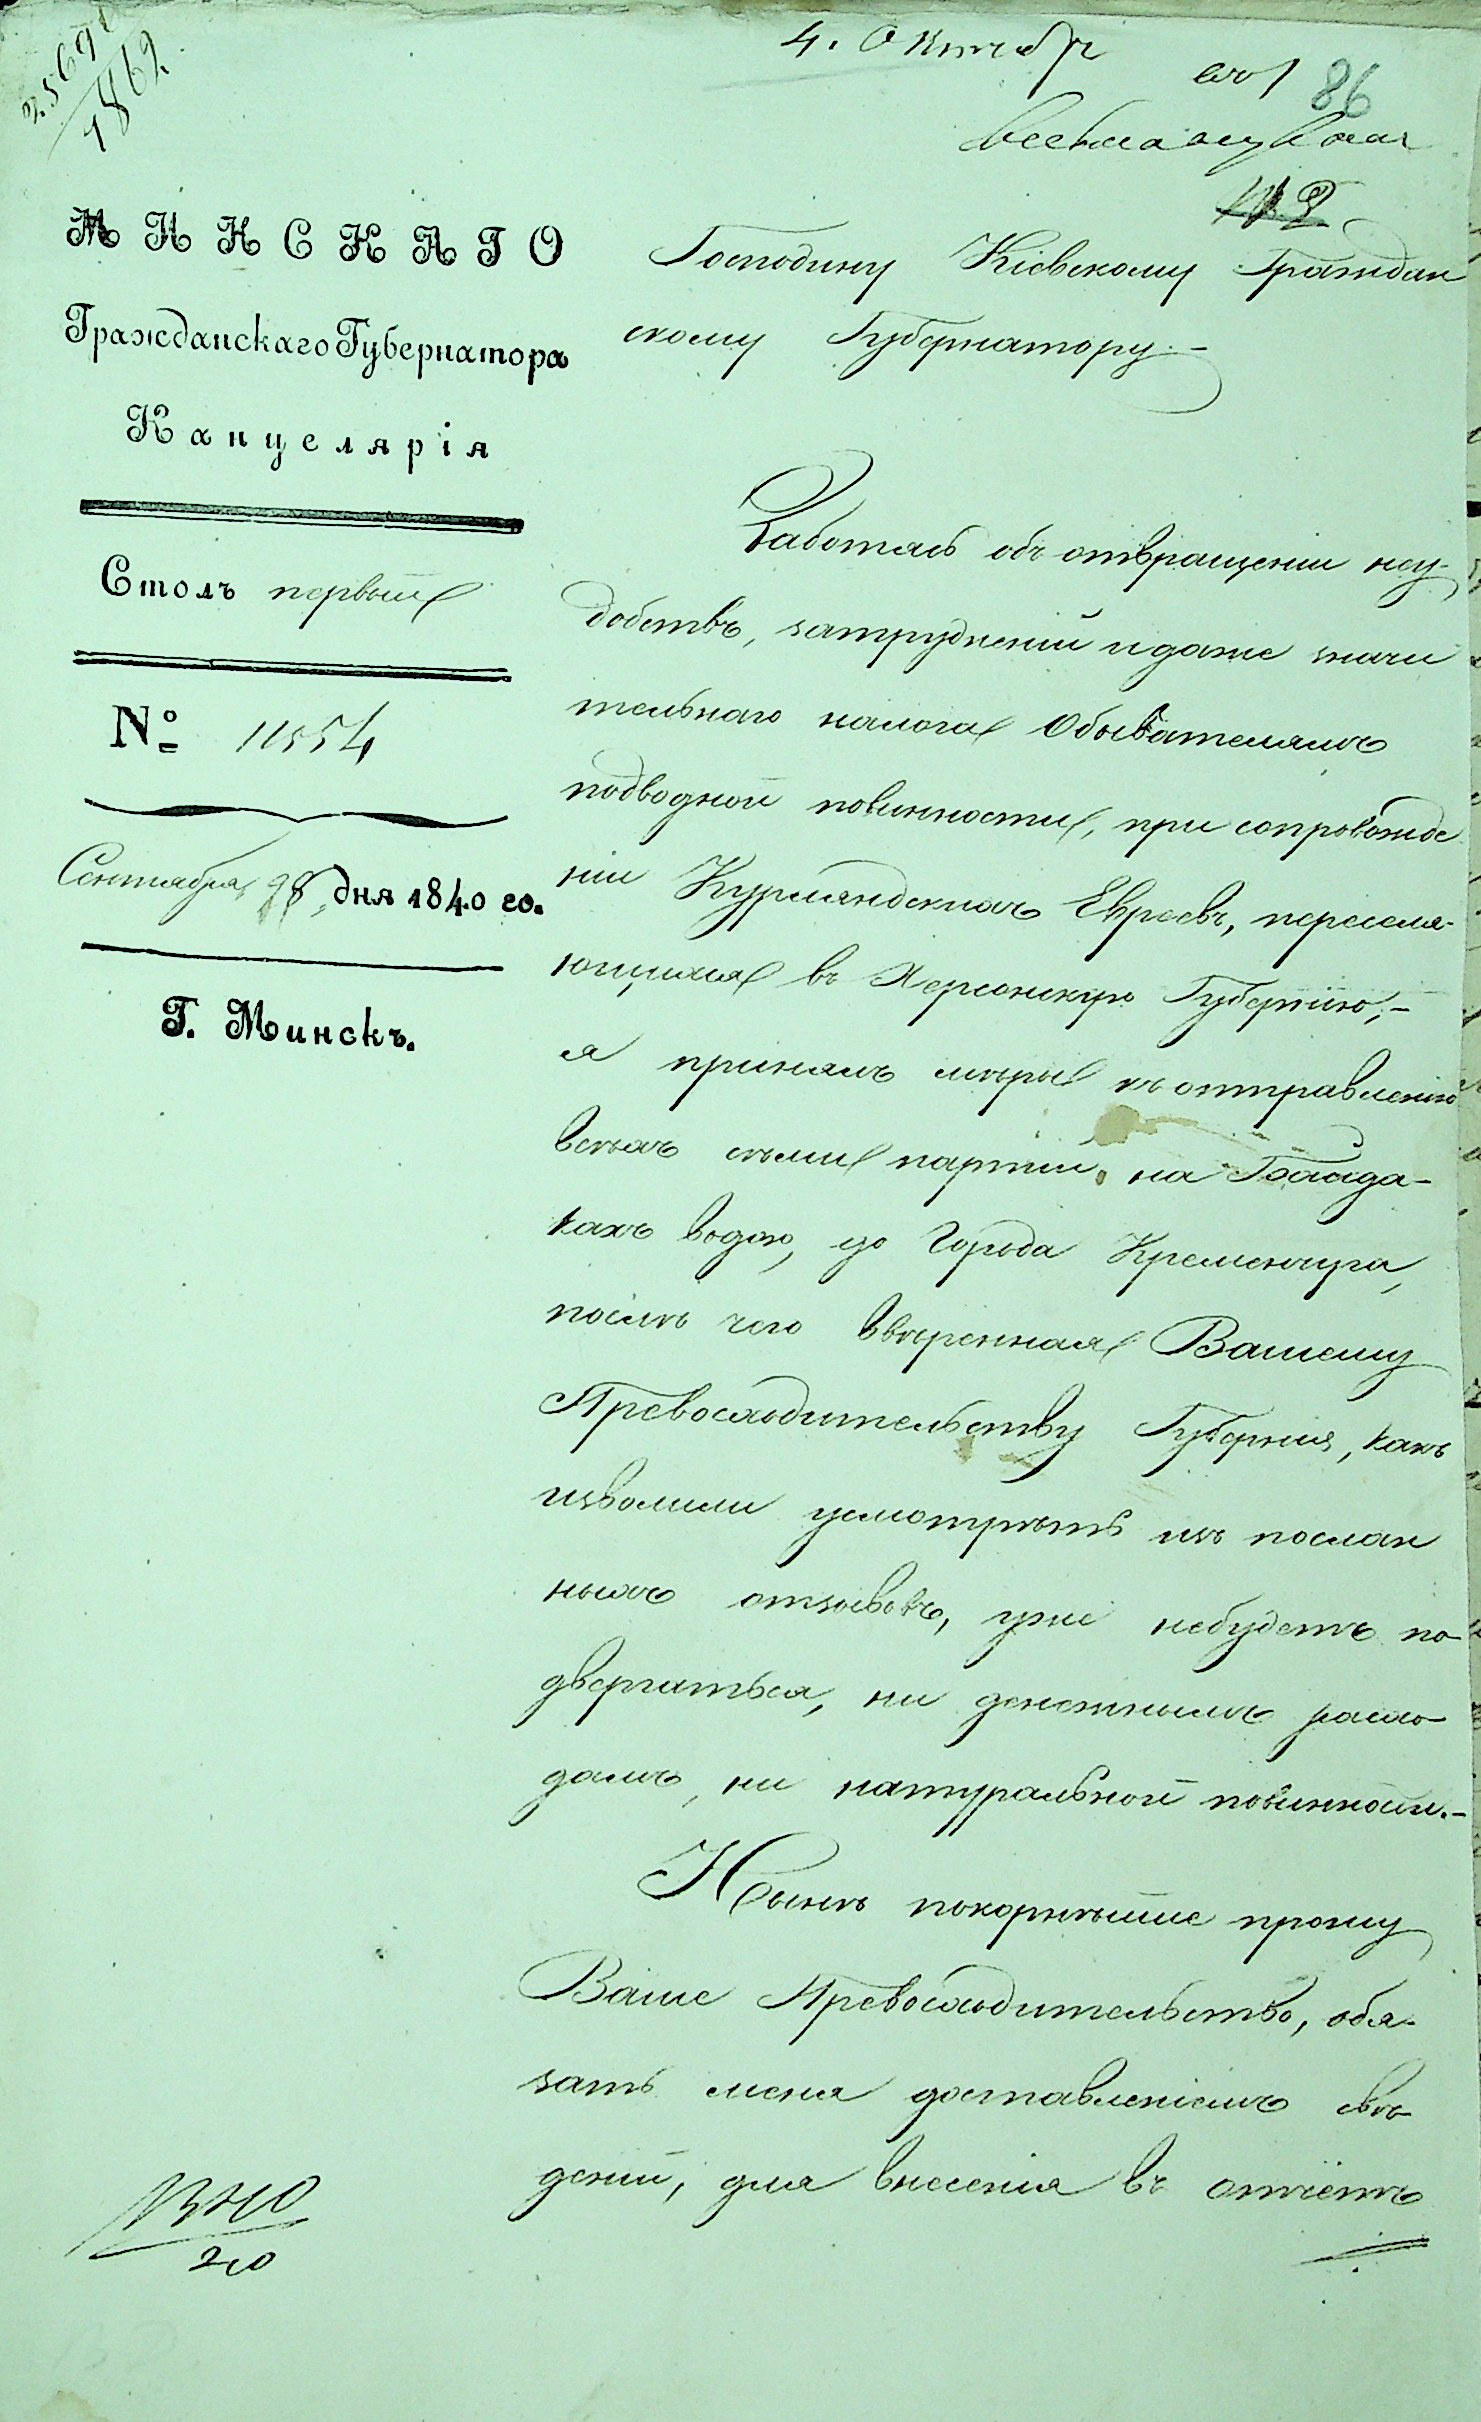 4. Октябр
86
МИНСКАГО
Гражданскаго Губернатора
Канцелярія
Столъ первый
№ 11554
Сентября 28 дня 1840 го.
Г. Минскъ.
Господину Кіевскому Граждан
скому Губернатору.–
Заботясь объ отвращеніи неу-
добствъ, затрудненій и даже значи
тельнаго налога Обывателямъ
подводной повинности, при сопровожде
ніи Курляндскихъ Евреевъ, переселя-
ющихся въ Херсонскую Губернію,–
я принялъ мѣры къ отправленію
всѣхъ сѣми партій, на Байда-
кахъ водою, до Города Кременчуга,
послѣ чего ввѣренная Вашему
Превосходительству Губернія, какъ
изволили усмотрѣть изъ послан
ныхъ отзывовъ, уже небудетъ по-
двергаться, ни денежнымъ расхо-
дамъ, ни натуральной повинности.–
Нынѣ покорнѣйше прошу
Ваше Превосходительство, обя-
зать меня доставленіемъ свѣ-
деній, для внесенія въ отчетъ